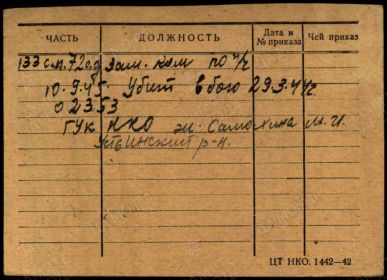 ЧАСТЬ ДОЛЖНОСТЬ Дата и № приказа Чей приказ
133 с.п. 72 сд Зам. ком по п/ч
10.9.45. Убит в бою 29.3.44г.
02353
ГУК НКО ж. Самохина М. И.
р-н.
ЦТ НКО. 1442—42